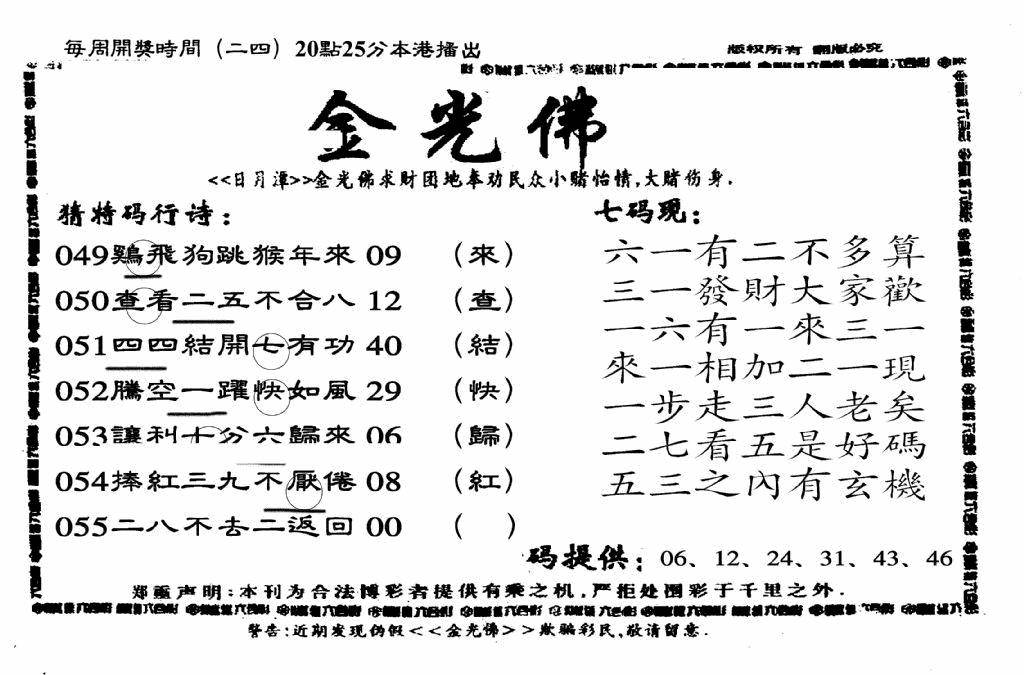 每周開獎時間（二四）20點25分本港播出
版权所有 翻版必究
金光佛
<<日月潭>>金光佛求财团地奉劝民众小赌怡情,大赌伤身.
猜特码行诗：
049鷄飛狗跳猴年來 09 （來）
050查看二五不合八 12 （查）
051四四結開七有功 40 （結）
052騰空一躍快如風 29 （快）
053讓利十分六歸來 06 （歸）
054捧紅三九不厭倦 08 （紅）
055二八不去二返回 00 （ ）
七码现：
六一有二不多算
三一發財大家歡
一六有一來三一
來一相加二一現
一步走三人老矣
二七看五是好碼
五三之內有玄機
码提供：06、12、24、31、43、46
郑重声明:本刊为合法博彩者提供有乘之机,严拒处围彩于千里之外.
警告:近期发现伪假<<金光佛>>欺骗彩民,敬请留意.